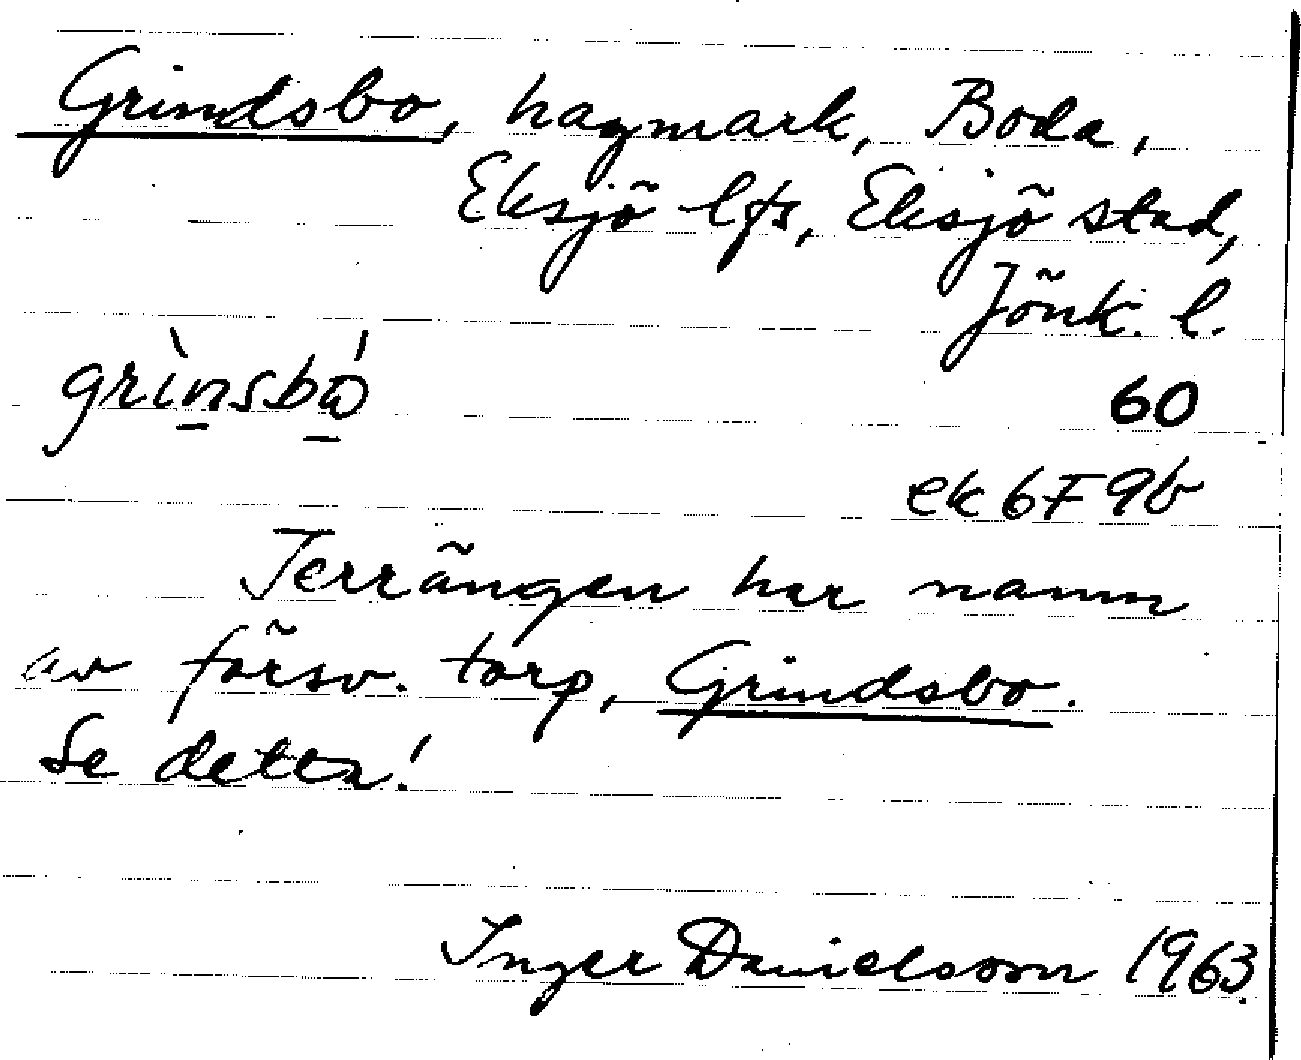 Grindsbo, hagmark, Boda,
Eksjö lfs, Eksjö stad,
Jönk. l.
grìn̲sbώ̲
60
ek 6F 9b
Terrängen har namn
av försv. torp, Grindsbo.
Se detta!
Inger Danielsson 1963.